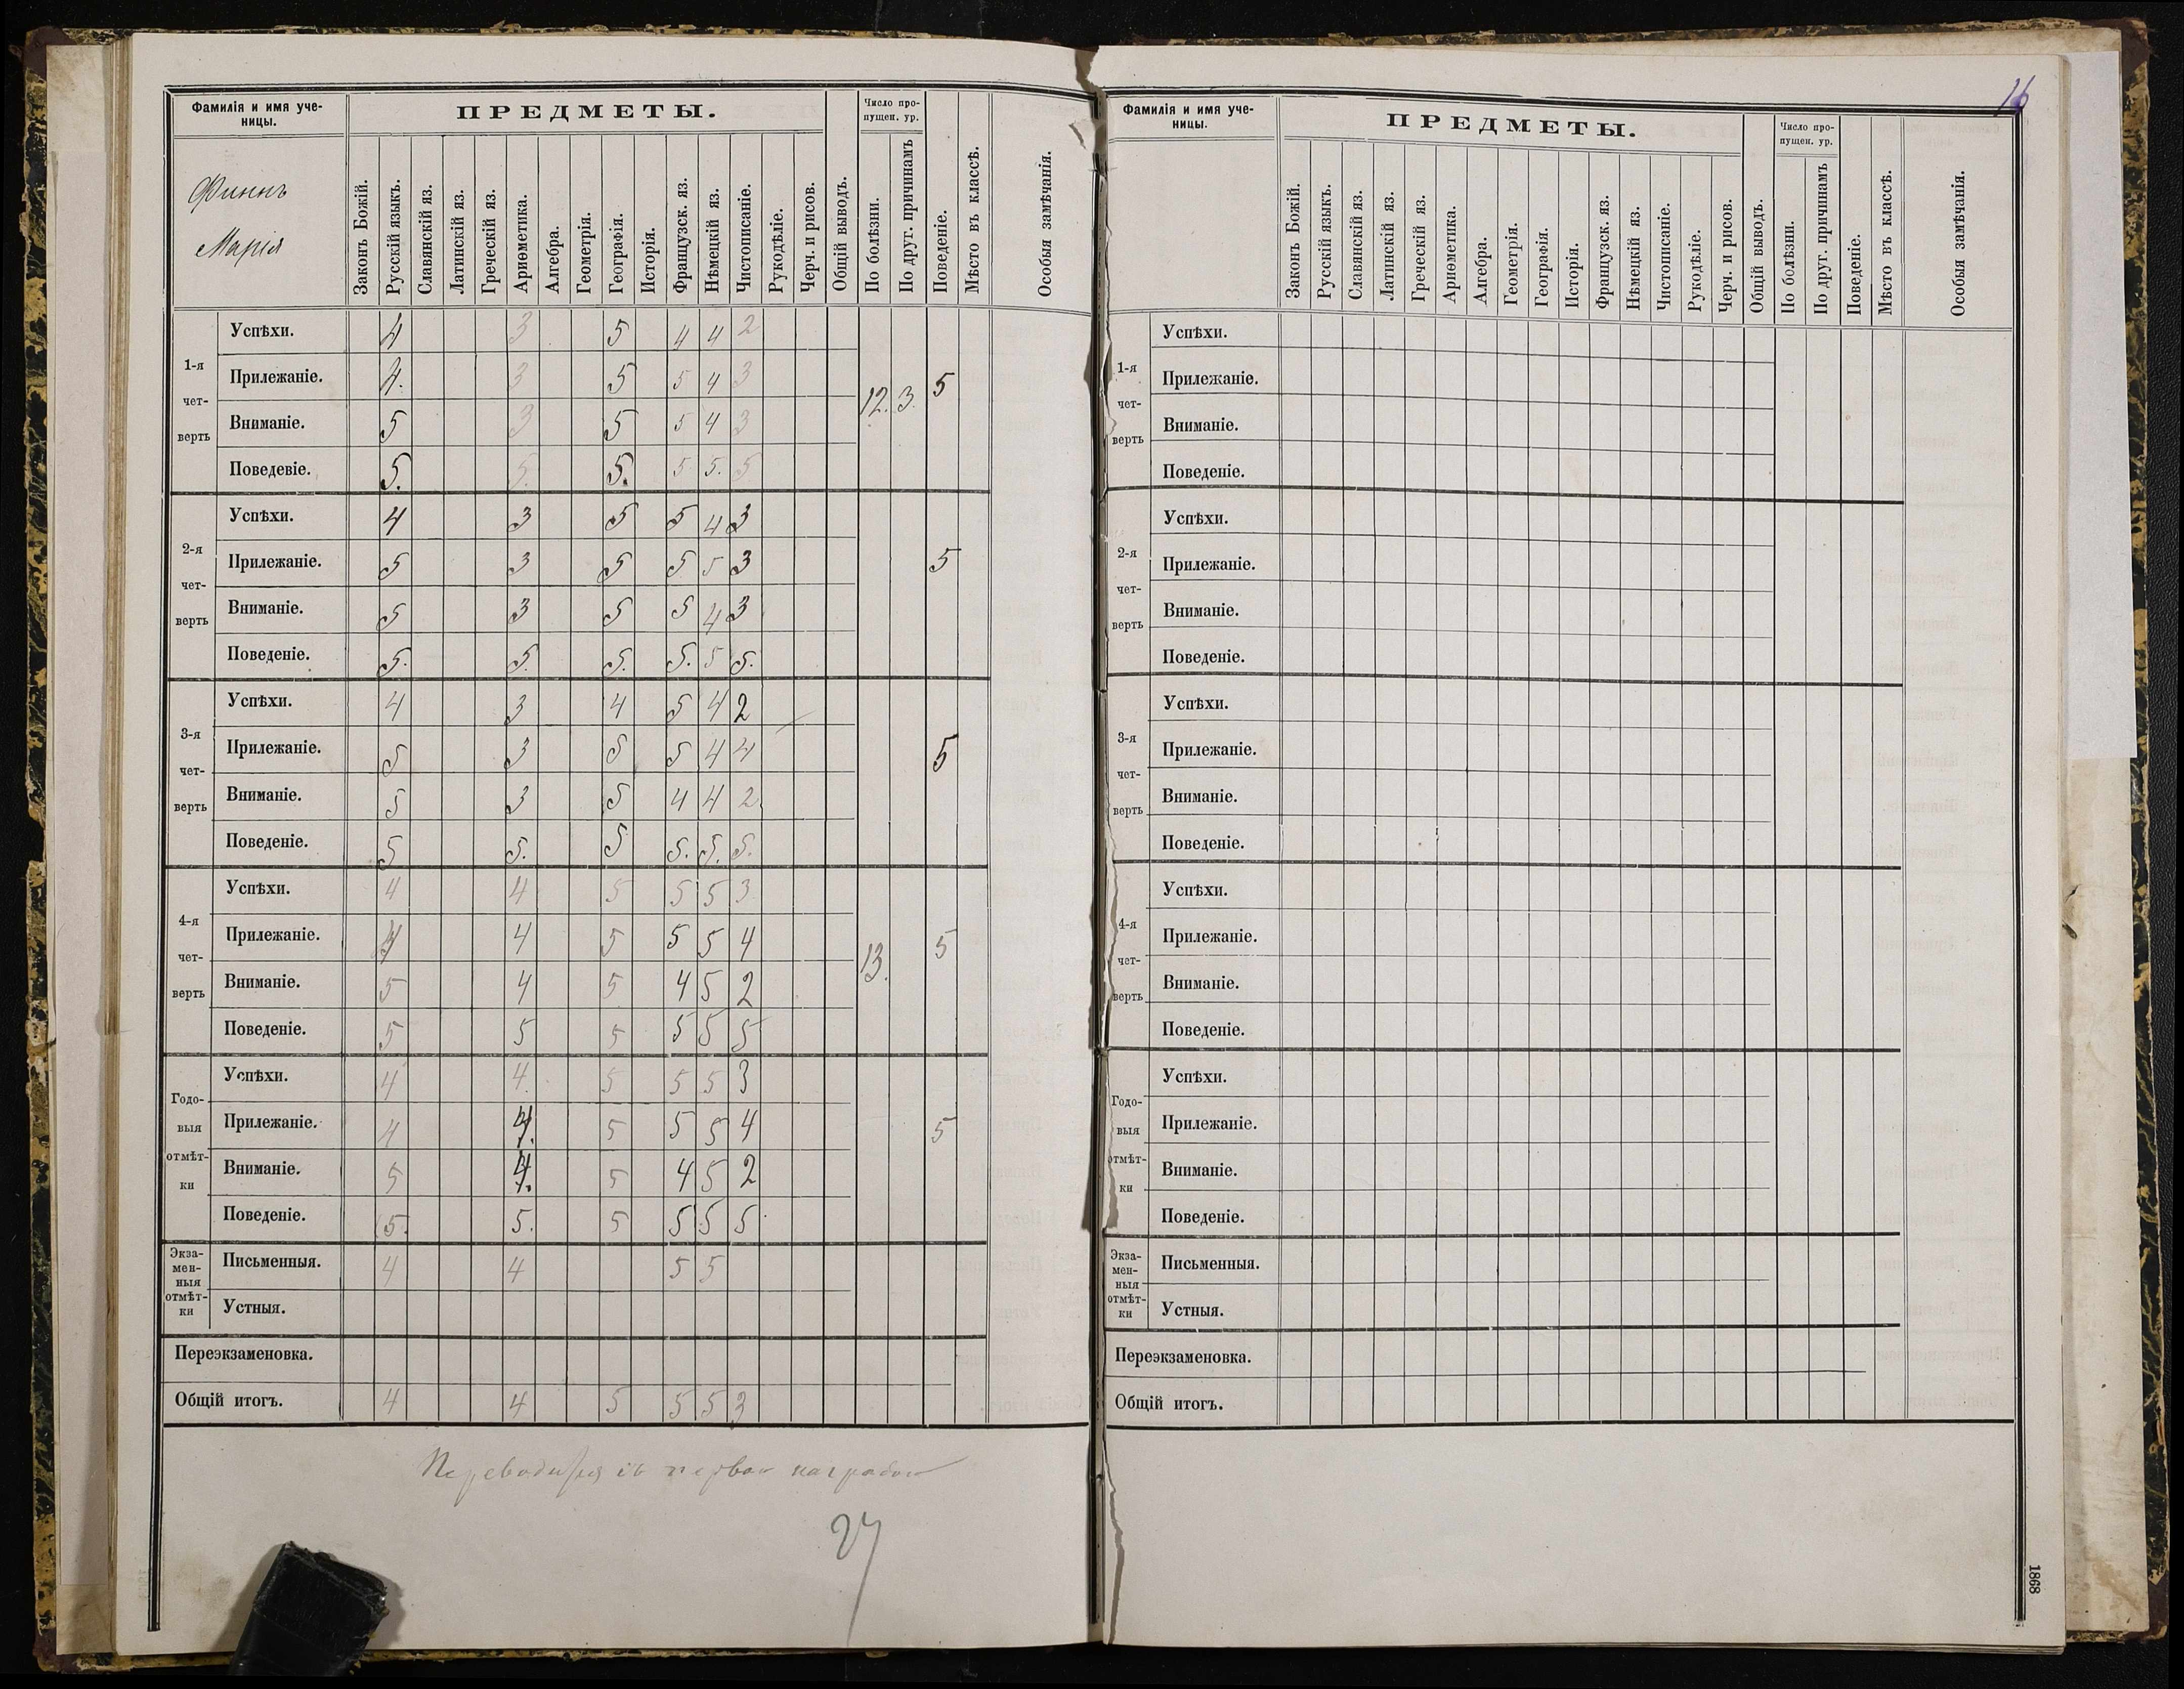 Фамилія и имя уче-
ницы.
ПРЕДМЕТЫ.
Число про-
пущен. ур.
Финнъ
Марія
Законъ Божій.
Русскій языкъ.
Славянскій яз.
Латинскій яз.
Греческій яз.
Ариѳметика.
Алгебра.
Геометрія.
Географія.
Исторія.
Французск. яз.
Нѣмецкій яз.
Чистописаніе.
Рукодѣліе.
Черч. и рисов.
Общій выводъ.
По болѣзни.
По друг. причинамъ
Поведеніе.
Мѣсто въ классѣ.
Особыя замѣчанія.
1-я
чет-
верть
Успѣхи. 4 3 5 4 4 2
Прилежаніе. 4. 3 5 5 4 3
Вниманіе. 5 3 5 5 4 3
Поведевіе. 5. 5. 5. 5 5. 5
12. 3. 5
2-я
чет-
верть
Успѣхи. 4 3 5 5 4 3
Прилежаніе. 5 3 5 5 5 3
Вниманіе. 5 3 5 5 4 3
Поведеніе. 5. 5. 5. 5. 5 5.
5
3-я
чет-
верть
Успѣхи. 4 3 4 5 4 2
Прилежаніе. 5 3 5 5 4 4
Вниманіе. 5 3 5 4 4 2
Поведеніе. 5 5. 5 5. 5. 5.
5
4-я
чет-
верть
Успѣхи. 4 4 5 5 5 3
Прилежаніе. 4 4 5 5 5 4
Вниманіе. 5 4 5 4 5 2
Поведеніе. 5 5 5 5 5 5
13. 5
Годо-
выя
отмѣт-
ки
Успѣхи. 4 4. 5 5 5 3
Прилежаніе. 4 4. 5 5 5 4
Вниманіе. 5 4. 5 4 5 2
Поведеніе. 5. 5. 5 5 5 5
5
Экза-
мен-
ныя
отмѣт-
ки
Письменныя. 4 4 5 5
Устныя.
Переэкзаменовка.
Общій итогъ. 4 4 5 5 5 3
Переводится съ первою наградою
27
16
Фамилія и имя уче-
ницы.
ПРЕДМЕТЫ.
Число про-
пущен. ур.
Законъ Божій.
Русскій языкъ.
Славянскій яз.
Латинскій яз.
Греческій яз.
Ариѳметика.
Алгебра.
Геометрія.
Географія.
Исторія.
Французск. яз.
Нѣмецкій яз.
Чистописаніе.
Рукодѣліе.
Черч. и рисов.
Общій выводъ.
По болѣзни.
По друг. причинамъ
Поведеніе.
Мѣсто въ классѣ.
Особыя замѣчанія.
1-я
чет-
верть
Успѣхи.
Прилежаніе.
Вниманіе.
Поведеніе.
2-я
чет-
верть
Успѣхи.
Прилежаніе.
Вниманіе.
Поведеніе.
3-я
чет-
верть
Успѣхи.
Прилежаніе.
Вниманіе.
Поведеніе.
4-я
чет-
верть
Успѣхи.
Прилежаніе.
Вниманіе.
Поведеніе.
Годо-
выя
отмѣт-
ки
Успѣхи.
Прилежаніе.
Вниманіе.
Поведеніе.
Экза-
мен-
ныя
отмѣт-
ки
Письменныя.
Устныя.
Переэкзаменовка.
Общій итогъ.
1868